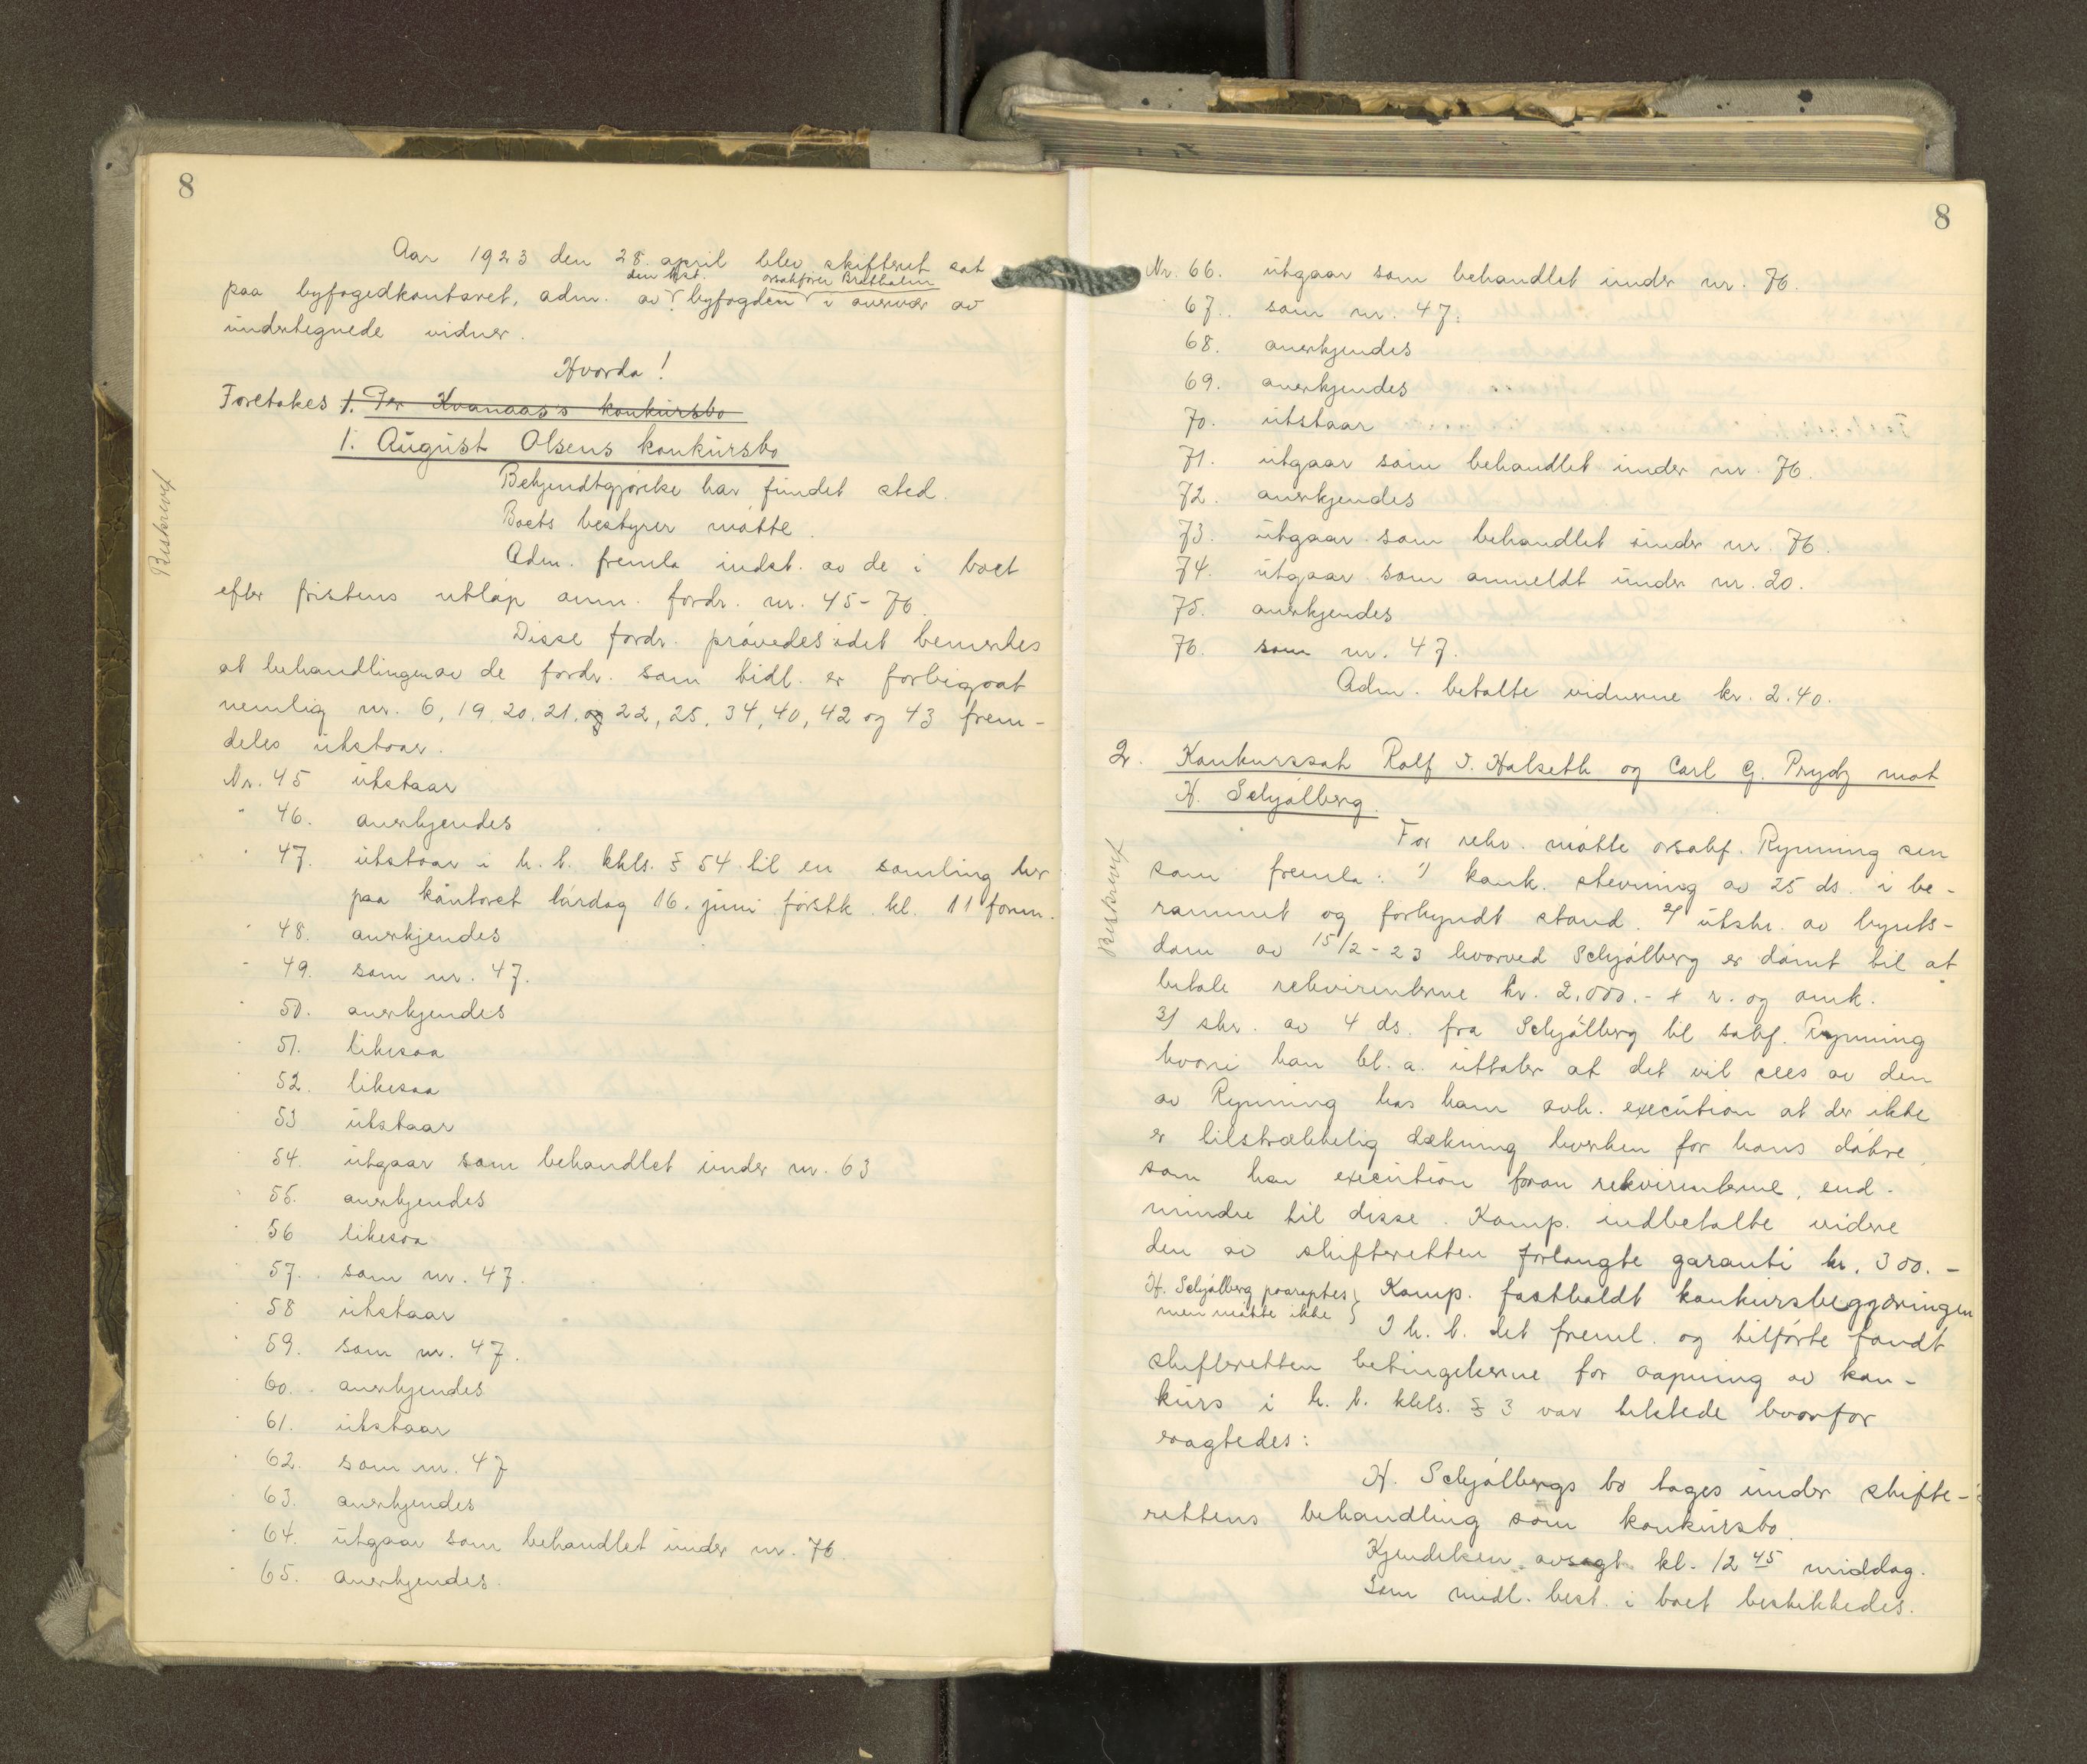 8
Aar 1923 den 28. april blev skifteret sat
den kst. orsakfører Bretholm
paa byfogedkontoret, adm. av byfogden i nærvær av
undertegnede vidner.
Hvorda!
Foretokes 1. Per Kvanaas's konkursbo
1. August Olsens konkursbo
Beskrevet
Bekjendtgjørelse har fundet sted.
Boets bestyrer møtte.
Adm. fremla indst. av de i boet
efter fristens utløp anm. fordr. nr. 45-76.
Disse fordr. prøvedes idet bemerkes
at behandlingen av de fordr. som tidl. er forbigaat
nemlig nr. 6, 19, 20, 21, og 22, 25, 34, 40, 42 og 43 frem-
deles utstaar.
Nr. 45 utstaar
" 46. anerkjendes
" 47. utstaar i h. t. kkls. § 54 til en samling her
paa kontoret lørdag 16. juni førstk. kl. 11 form.
" 48. anerkjendes
" 49. som nr. 47.
" 50. anerkjendes
" 51. likesaa
" 52. likesaa
" 53 utstaar
" 54. utgaar som behandlet under nr. 63
" 55. anerkjendes
" 56 likesaa
" 57. som nr. 47.
" 58 utstaar
" 59. som nr. 47.
" 60. anerkjendes
" 61. utstaar
" 62. som nr. 47
" 63. anerkjendes
" 64. utgaar som behandlet under nr. 76.
" 65. anerkjendes.
8
Nr. 66. utgaar som behandlet under nr. 76.
67. som nr. 47.
68. anerkjendes
69. anerkjendes
70. utstaar
71. utgaar som behandlet under nr. 76.
72. anerkjendes
73. utgaar som behandlet under nr. 76.
74. utgaar som anmeldt under nr. 20.
75. anerkjendes
76. som nr. 47.
Adm. betalte vidnerne kr. 2.40.
2. Konkurssak Rolf I. Halseth og Carl G. Prydz mot
H. Schjølberg.
Beskrevet
For rekv. møtte orsakf. Rynning sen
som fremla: 1) konk. stevning av 25 ds. i be-
rammet og forkyndt stand. 2) utskr. av byrets-
dom av 15/2-23 hvorved Schjølberg er dømt til at
betale rekvirenterne kr. 2.000.- + r. og omk.
3) skr. av 4 ds. fra Schjølberg til sakf. Rynning
hvori han bl. a. uttaler at det vil sees av den
av Rynning hos ham avh. execution at der ikke
er tilstrækkelig dækning hverken for hans døtre,
som har execution foran rekvirenterne, end-
mindre til disse. Komp. indbetalte videre
den av skifteretten forlangte garanti kr. 300.-
H. Schjølberg paaroptes
men møtte ikke
Komp. fastholdt konkursbegjæringen
I h. t. det freml. og tilførte fandt
skifteretten betingelserne for aapning av kon-
kurs i h. t. kkls. § 3 var tilstede hvorfor
eragtedes:
H. Schjølbergs bo tages under skifte-
rettens behandling som konkursbo.
Kjendelsen avsagt kl. 12 45 middag.
Som midl. best. i boet beskikkedes.